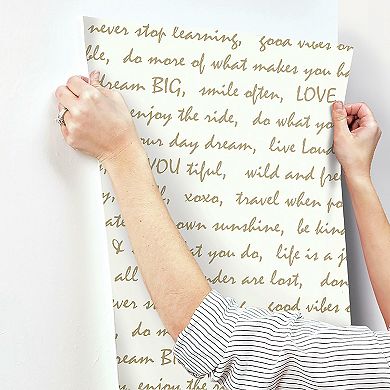 never stop learning, good vibes on
ble, do more of what makes you ha
dream BIG, smile often, LOVE
enjoy the ride, do what you
ur day dream, live Loud
YOU tiful, wild and fre
xoxo, travel when po
ate own sunshine, be kind
& at you do, life is a j
all nder are lost, don
never st good vibes o
do m
ream BIG
enjoy the r